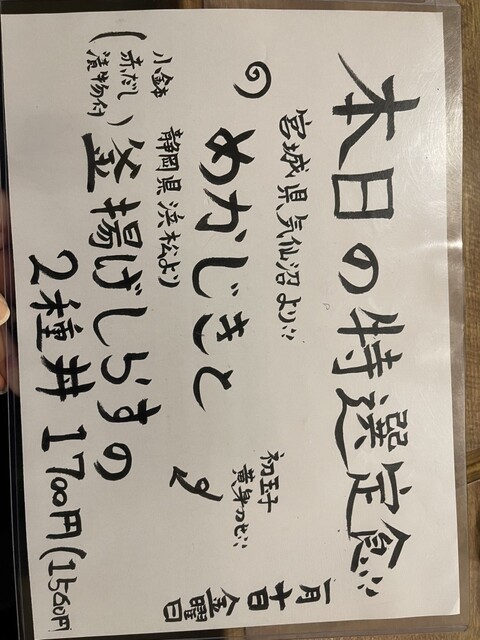 本日の特選定食
二月十日金曜日
宮城県気仙沼より
の めかじきと
初玉子
黄身のせ
静岡県浜松より
釜揚げしらすの
(小鉢
赤だし
漬物付)
2種丼 1700円(1560円